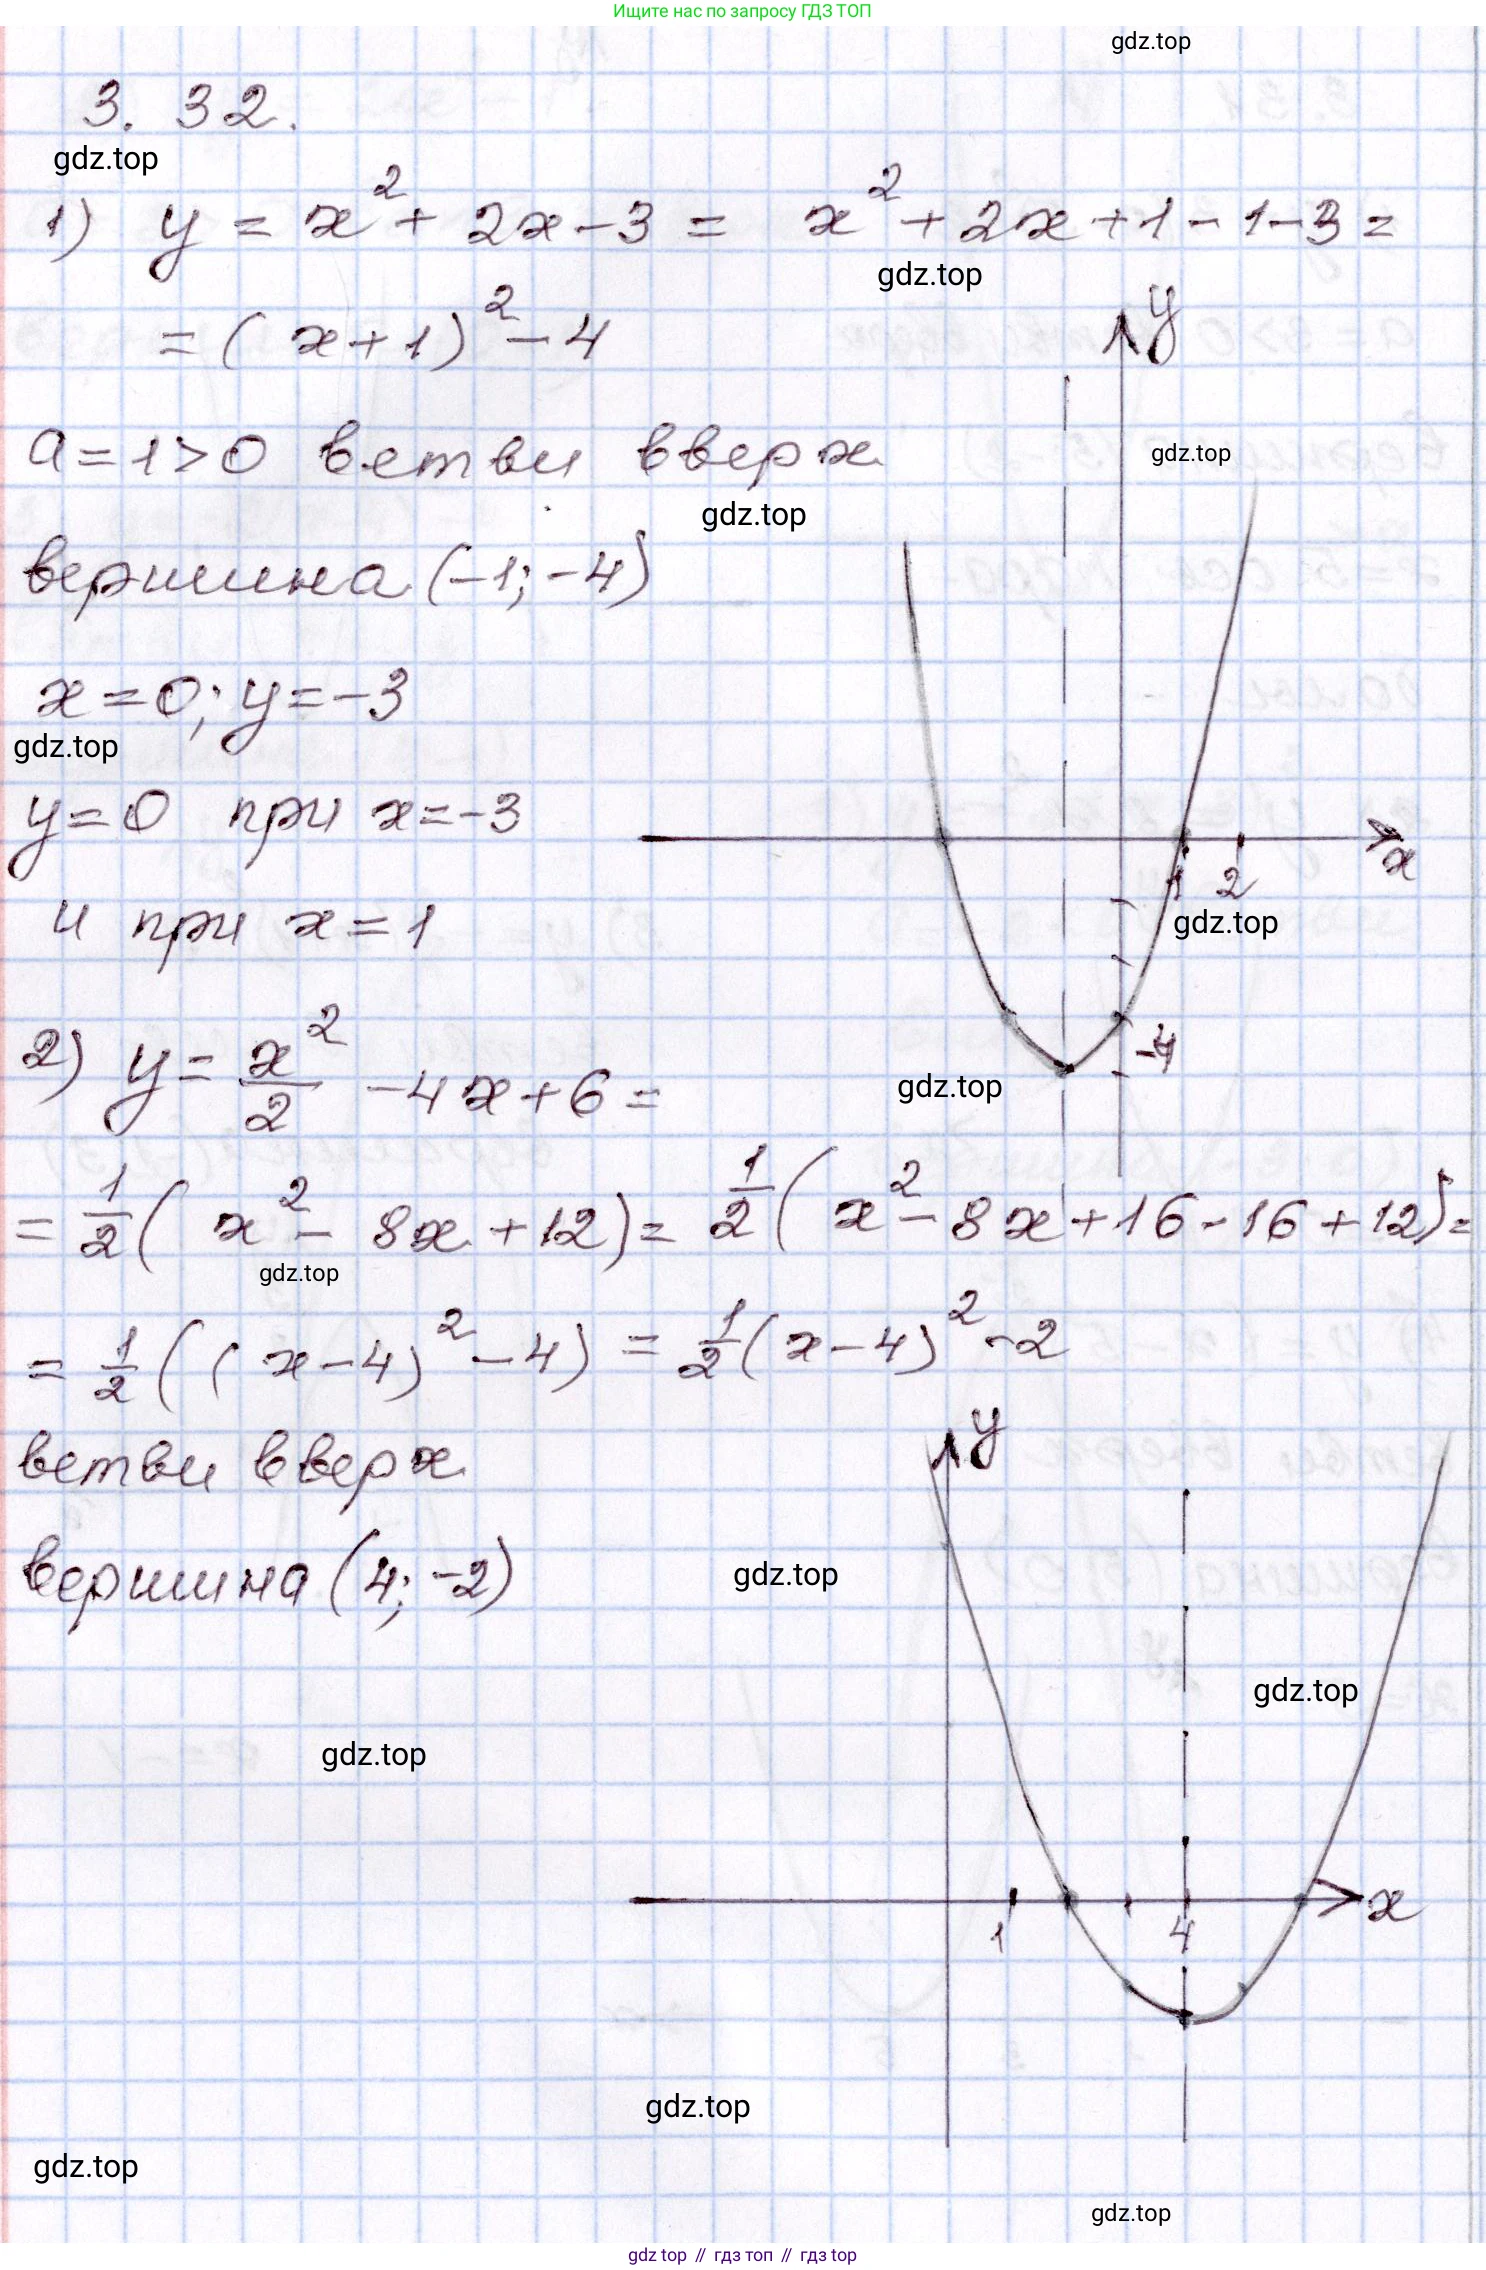 Ищите нас по запросу ГДЗ ТОП
gdz.top
3. 32.
gdz.top
1) y = x² + 2x - 3 = x² + 2x + 1 - 1 - 3 =
gdz.top
= (x + 1)² - 4
y
a = 1 > 0 ветви вверх
gdz.top
gdz.top
вершина (-1; -4)
x = 0; y = -3
gdz.top
y = 0 при x = -3
x
1 2
gdz.top
и при x = 1
-4
2) y = x²/2 - 4x + 6 =
gdz.top
= 1/2 (x² - 8x + 12) = 1/2 (x² - 8x + 16 - 16 + 12) =
gdz.top
= 1/2 ((x - 4)² - 4) = 1/2 (x - 4)² - 2
y
ветви вверх
вершина (4; -2)
gdz.top
gdz.top
gdz.top
x
1 4
gdz.top
gdz.top
gdz.top
gdz top // гдз топ // gdz top